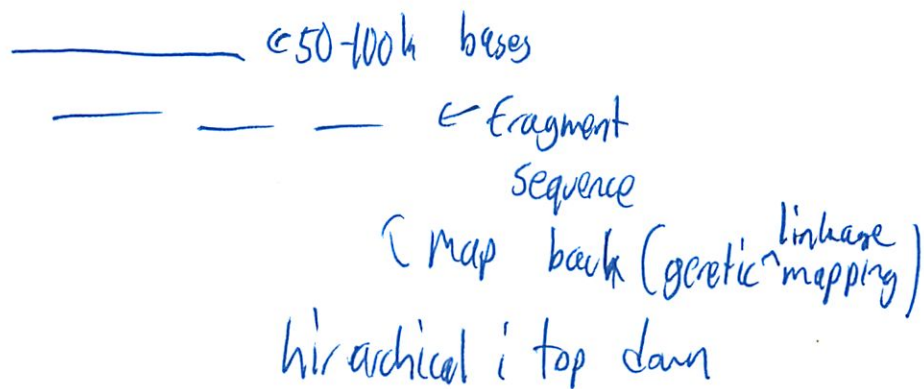 ← 50-100k bases
← fragment
sequence
↑ map back (genetic ^linkage mapping)
hirarchical i top down